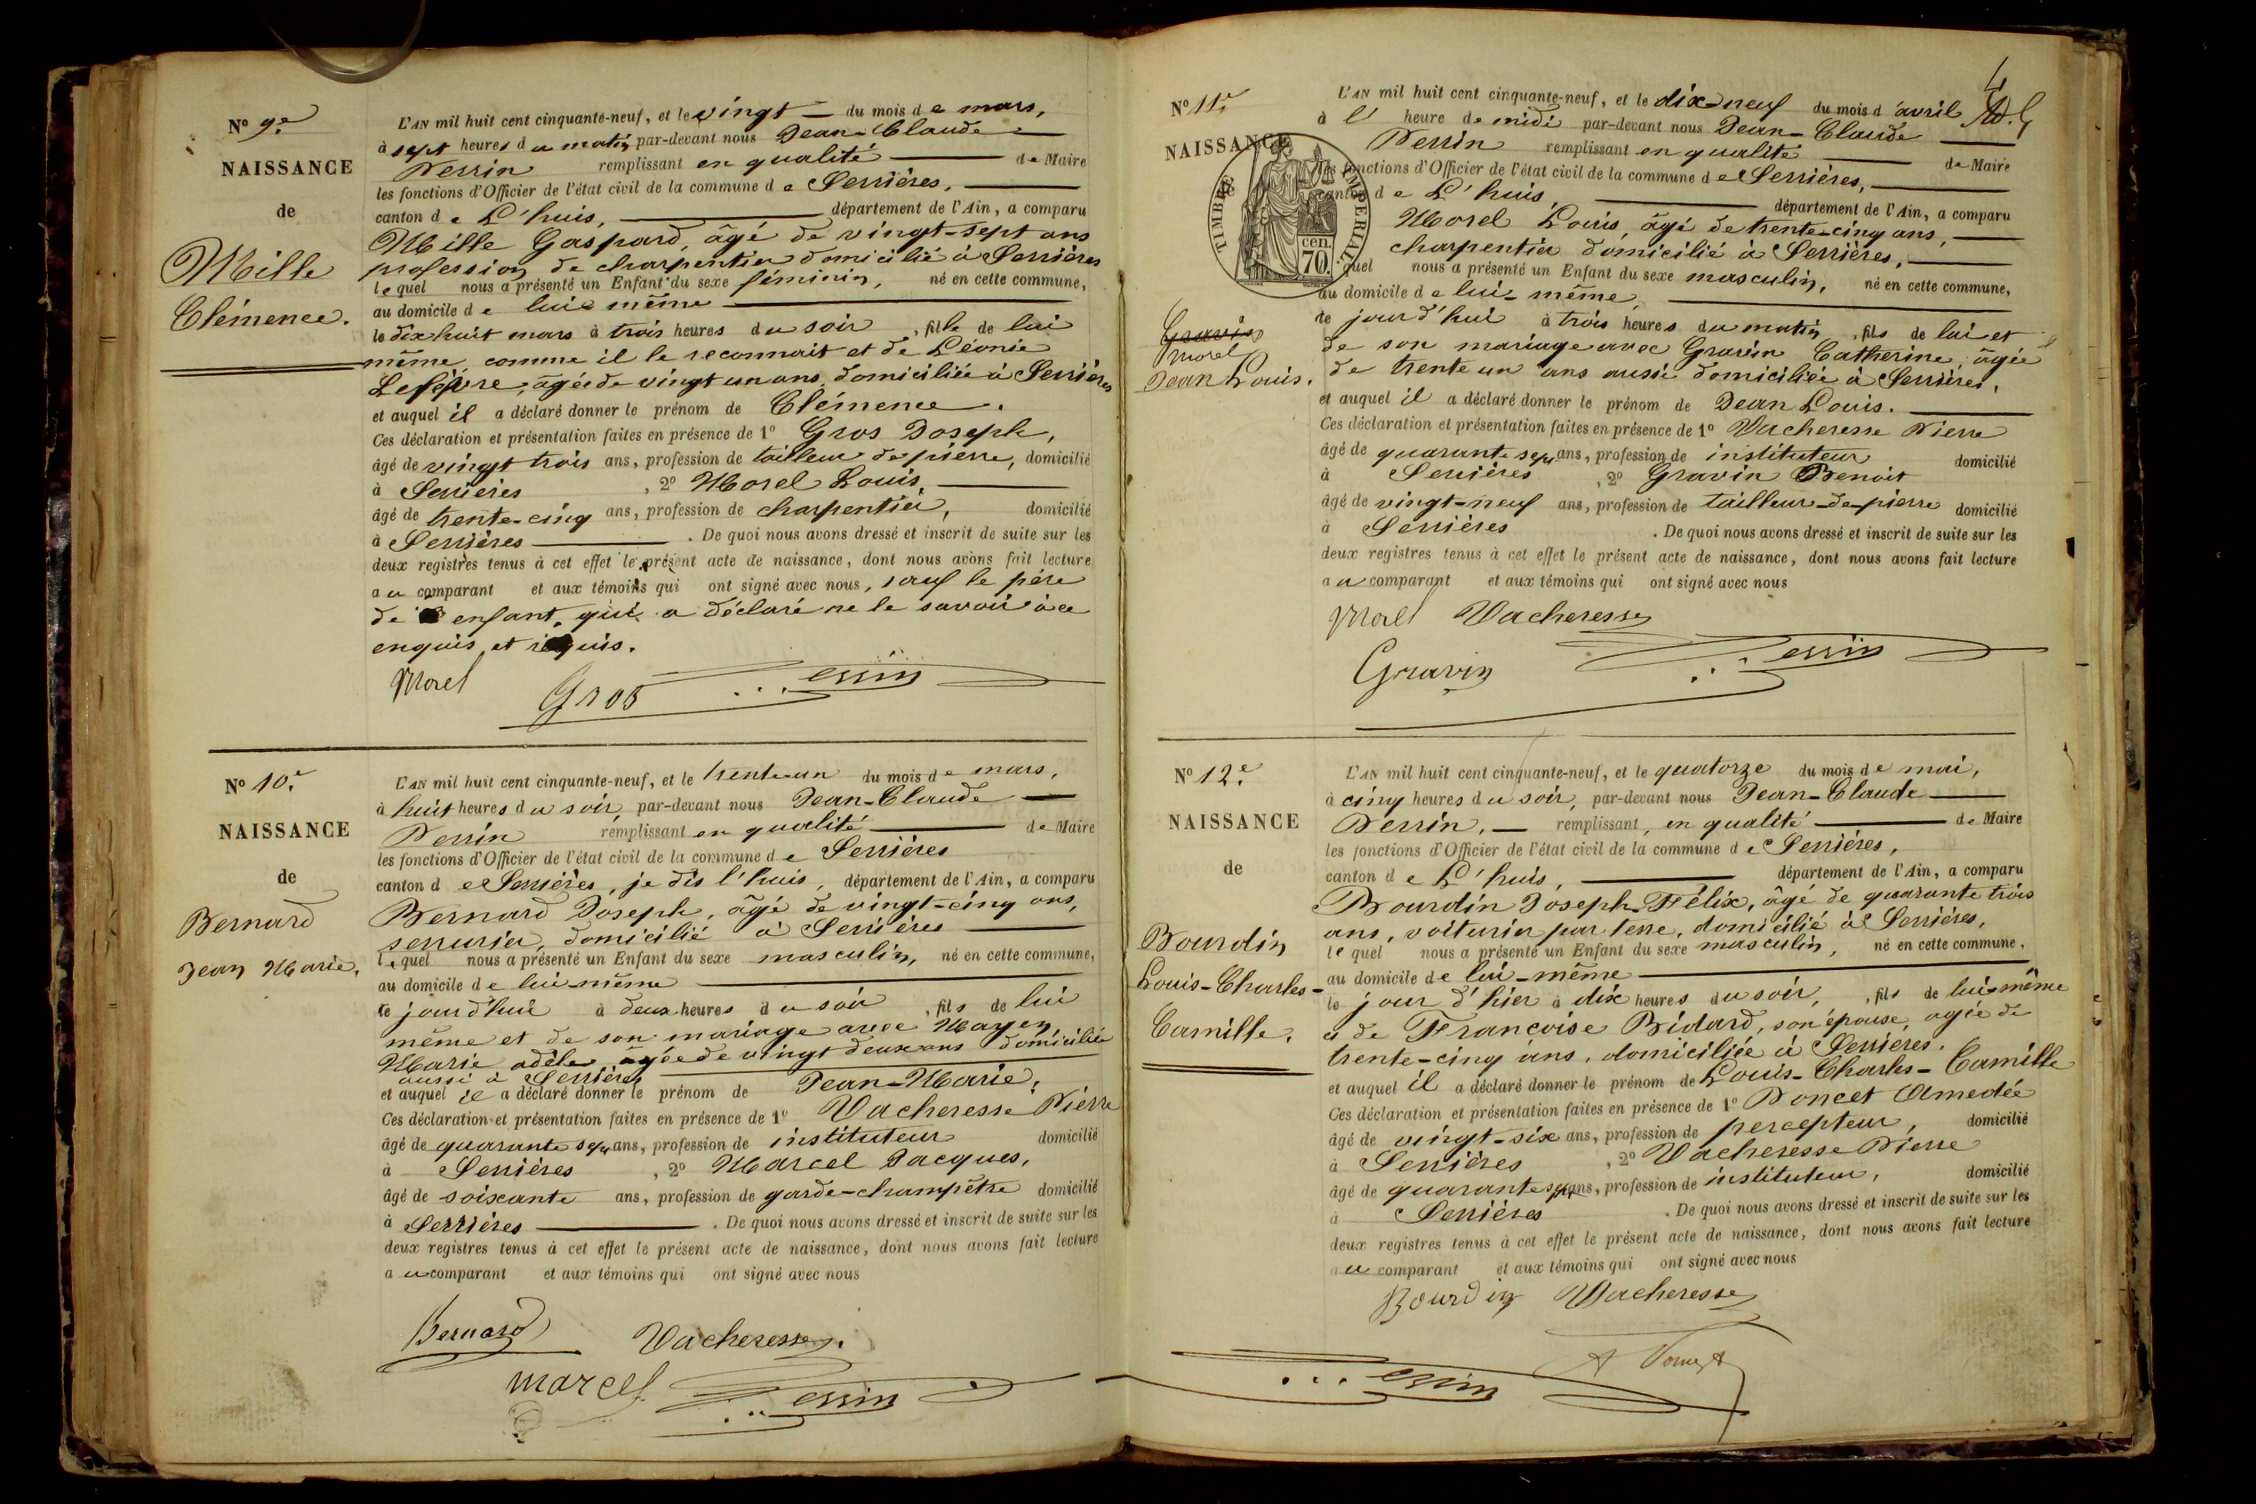 N° 9.e
NAISSANCE
de
Mille
Clémence.
L'AN mil huit cent cinquante-neuf, et le vingt du mois de mars,
à sept heures du matin par-devant nous Jean-Claude
Perrin remplissant en qualité de Maire
les fonctions d'Officier de l'état civil de la commune de Serrières,
canton de L'huis, département de l'Ain, a comparu
Mille Gaspard, âgé de vingt-sept ans
profession de charpentier domicilié à Serrières
lequel nous a présenté un Enfant du sexe féminin, né en cette commune,
au domicile de lui même
le dix huit mars à trois heures du soir, fille de lui
même comme il le reconnait et de Léonie
Lefèvre, âgée de vingt un ans, domiciliée à Serrières
et auquel il a déclaré donner le prénom de Clémence.
Ces déclaration et présentation faites en présence de 1° Gros Joseph,
âgé de vingt trois ans, profession de tailleur de pierre, domicilié
à Serrières, 2° Morel Louis,
âgé de trente-cinq ans, profession de charpentier, domicilié
à Serrières. De quoi nous avons dressé et inscrit de suite sur les
deux registres tenus à cet effet le présent acte de naissance, dont nous avons fait lecture
au comparant et aux témoins qui ont signé avec nous, sauf le père
de enfant, qui a déclaré ne le savoir à ce
enquis et requis.
Morel Gros Perrin
N° 10.e
NAISSANCE
de
Bernard
Jean Marie.
L'AN mil huit cent cinquante-neuf, et le trente-un du mois de mars,
à huit heures du soir, par-devant nous Jean-Claude
Perrin remplissant en qualité de Maire
les fonctions d'Officier de l'état civil de la commune de Serrières
canton de Serrières, je dis l'huis, département de l'Ain, a comparu
Bernard Joseph, âgé de vingt-cinq ans,
serrurier, domicilié à Serrières
lequel nous a présenté un Enfant du sexe masculin, né en cette commune,
au domicile de lui-même
ce jourd'hui à deux heures du soir, fils de lui
même et de son mariage avec Mayen
Marie adèle âgée de vingt deux ans domiciliée
aussi à Serrières
et auquel il a déclaré donner le prénom de Jean-Marie,
Ces déclaration et présentation faites en présence de 1° Vacheresse Pierre
âgé de quarante sept ans, profession de instituteur domicilié
à Serrières, 2° Marcel Jacques,
âgé de soixante ans, profession de garde-champêtre domicilié
à Serrières. De quoi nous avons dressé et inscrit de suite sur les
deux registres tenus à cet effet le présent acte de naissance, dont nous avons fait lecture
au comparant et aux témoins qui ont signé avec nous
Bernard Vacheresse.
marcel Perrin
4
N° 11.e
NAISSANCE
TIMBRE IMPERIAL
70 cen.
Gravin
Morel
Jean Louis.
L'AN mil huit cent cinquante-neuf, et le dix-neuf du mois d'avril
à l' heure de midi par-devant nous Jean-Claude
Perrin remplissant en qualité de Maire
les fonctions d'Officier de l'état civil de la commune de Serrières,
canton de L'huis, département de l'Ain, a comparu
Morel Louis, âgé de trente-cinq ans,
charpentier domicilié à Serrières,
quel nous a présenté un Enfant du sexe masculin, né en cette commune,
au domicile de lui-même,
ce jour d'hui à trois heures du matin, fils de lui et
de son mariage avec Gravin Catherine, âgée
de trente un ans aussi domiciliée à Serrières,
et auquel il a déclaré donner le prénom de Jean Louis.
Ces déclaration et présentation faites en présence de 1° Vacheresse Pierre
âgé de quarante sept ans, profession de instituteur domicilié
à Serrières, 2° Gravin Benoit
âgé de vingt-neuf ans, profession de tailleur-de-pierre domicilié
à Serrières. De quoi nous avons dressé et inscrit de suite sur les
deux registres tenus à cet effet le présent acte de naissance, dont nous avons fait lecture
au comparant et aux témoins qui ont signé avec nous
Morel Vacheresse
Gravin Perrin
N° 12.e
NAISSANCE
de
Bourdin
Louis-Charles-
Camille.
L'AN mil huit cent cinquante-neuf, et le quatorze du mois de mai,
à cinq heures du soir, par-devant nous Jean-Claude
Perrin, remplissant, en qualité de Maire
les fonctions d'Officier de l'état civil de la commune de Serrières,
canton de L'huis, département de l'Ain, a comparu
Bourdin Joseph-Félix, âgé de quarante trois
ans, voiturier par terre, domicilié à Serrières,
lequel nous a présenté un Enfant du sexe masculin, né en cette commune,
au domicile de lui-même
le jour d'hier à dix heures du soir, fils de lui-même
et de Françoise Bidard, son épouse, agée de
trente-cinq ans, domiciliée à Serrières.
et auquel il a déclaré donner le prénom de Louis-Charles-Camille
Ces déclaration et présentation faites en présence de 1° Poncet Amedée
âgé de vingt-six ans, profession de percepteur, domicilié
à Serrières, 2° Vacheresse Pierre
âgé de quarante sept ans, profession de instituteur, domicilié
à Serrières. De quoi nous avons dressé et inscrit de suite sur les
deux registres tenus à cet effet le présent acte de naissance, dont nous avons fait lecture
au comparant et aux témoins qui ont signé avec nous
Bourdin Vacheresse
Perrin A Poncet